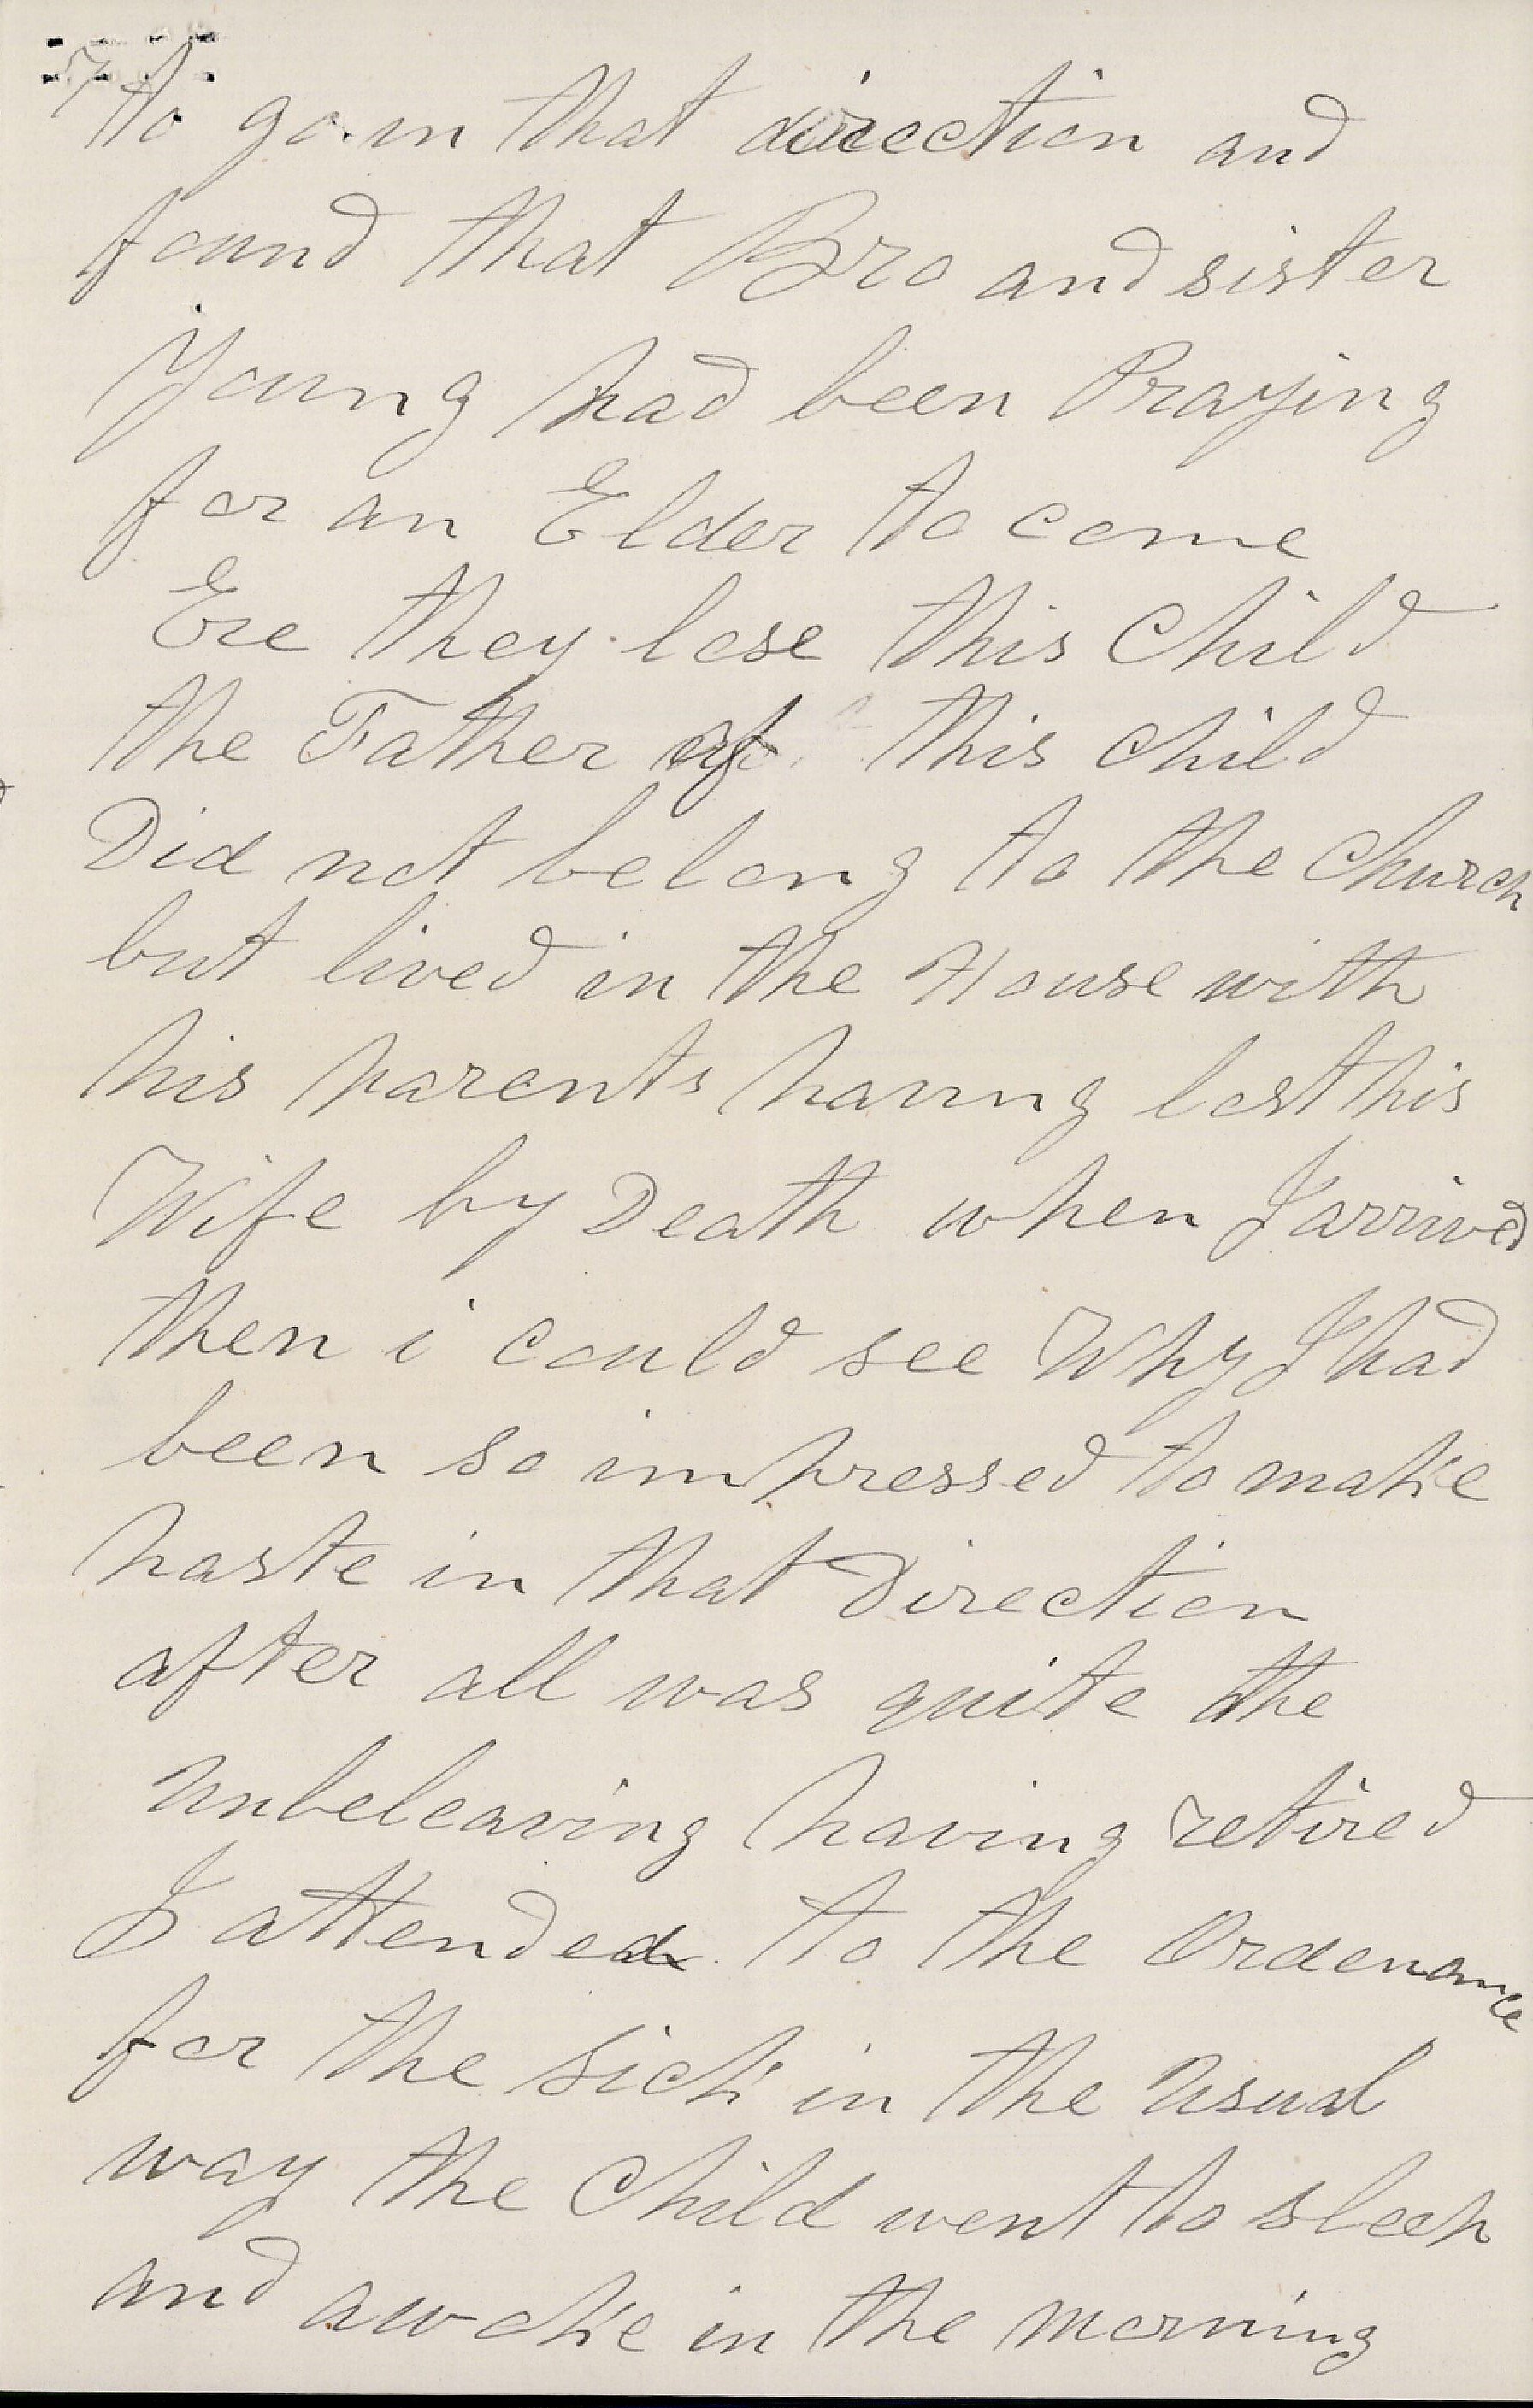 7 to go in that direction and
found that Bro and sister
Young had been Praying
for an Elder to come
Ere they lose this Child
the Father of this child
Did not belong to the Church
but lived in the House with
his parents having lost his
Wife by Death when I arrived
then i could see Why I had
been so impressed to make
haste in that Direction
after all was quite the
unbeleaving having retired
I attended to the Ordenance
for the sick in the usual
way the Child went to sleep
and awoke in the morning